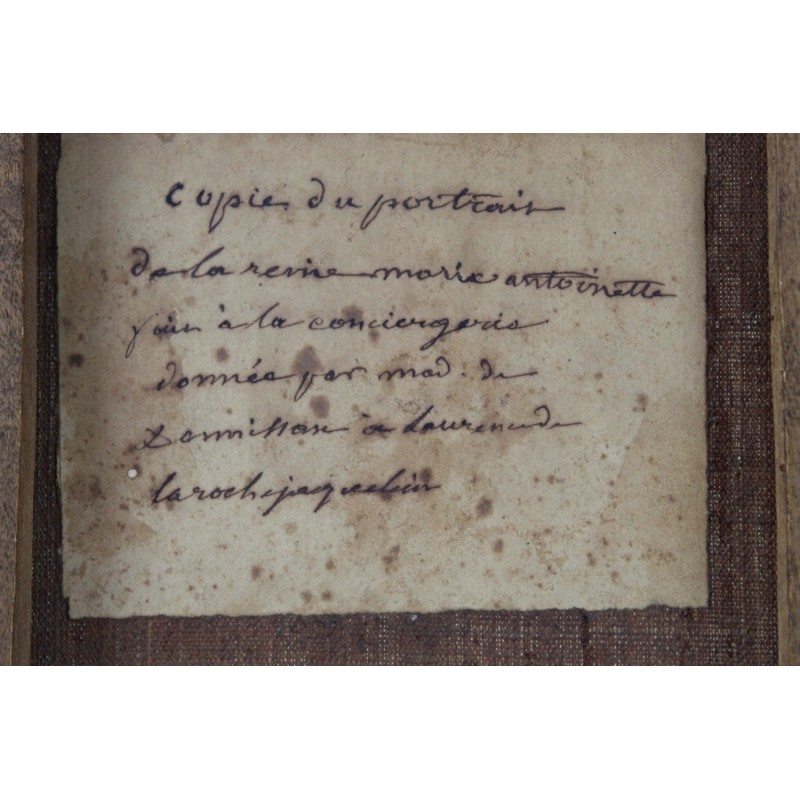 Copie du portrait
de la reine marie antoinette
fait à la conciergerie
donnée par mad. de
à Laurence de
larochejaquelin